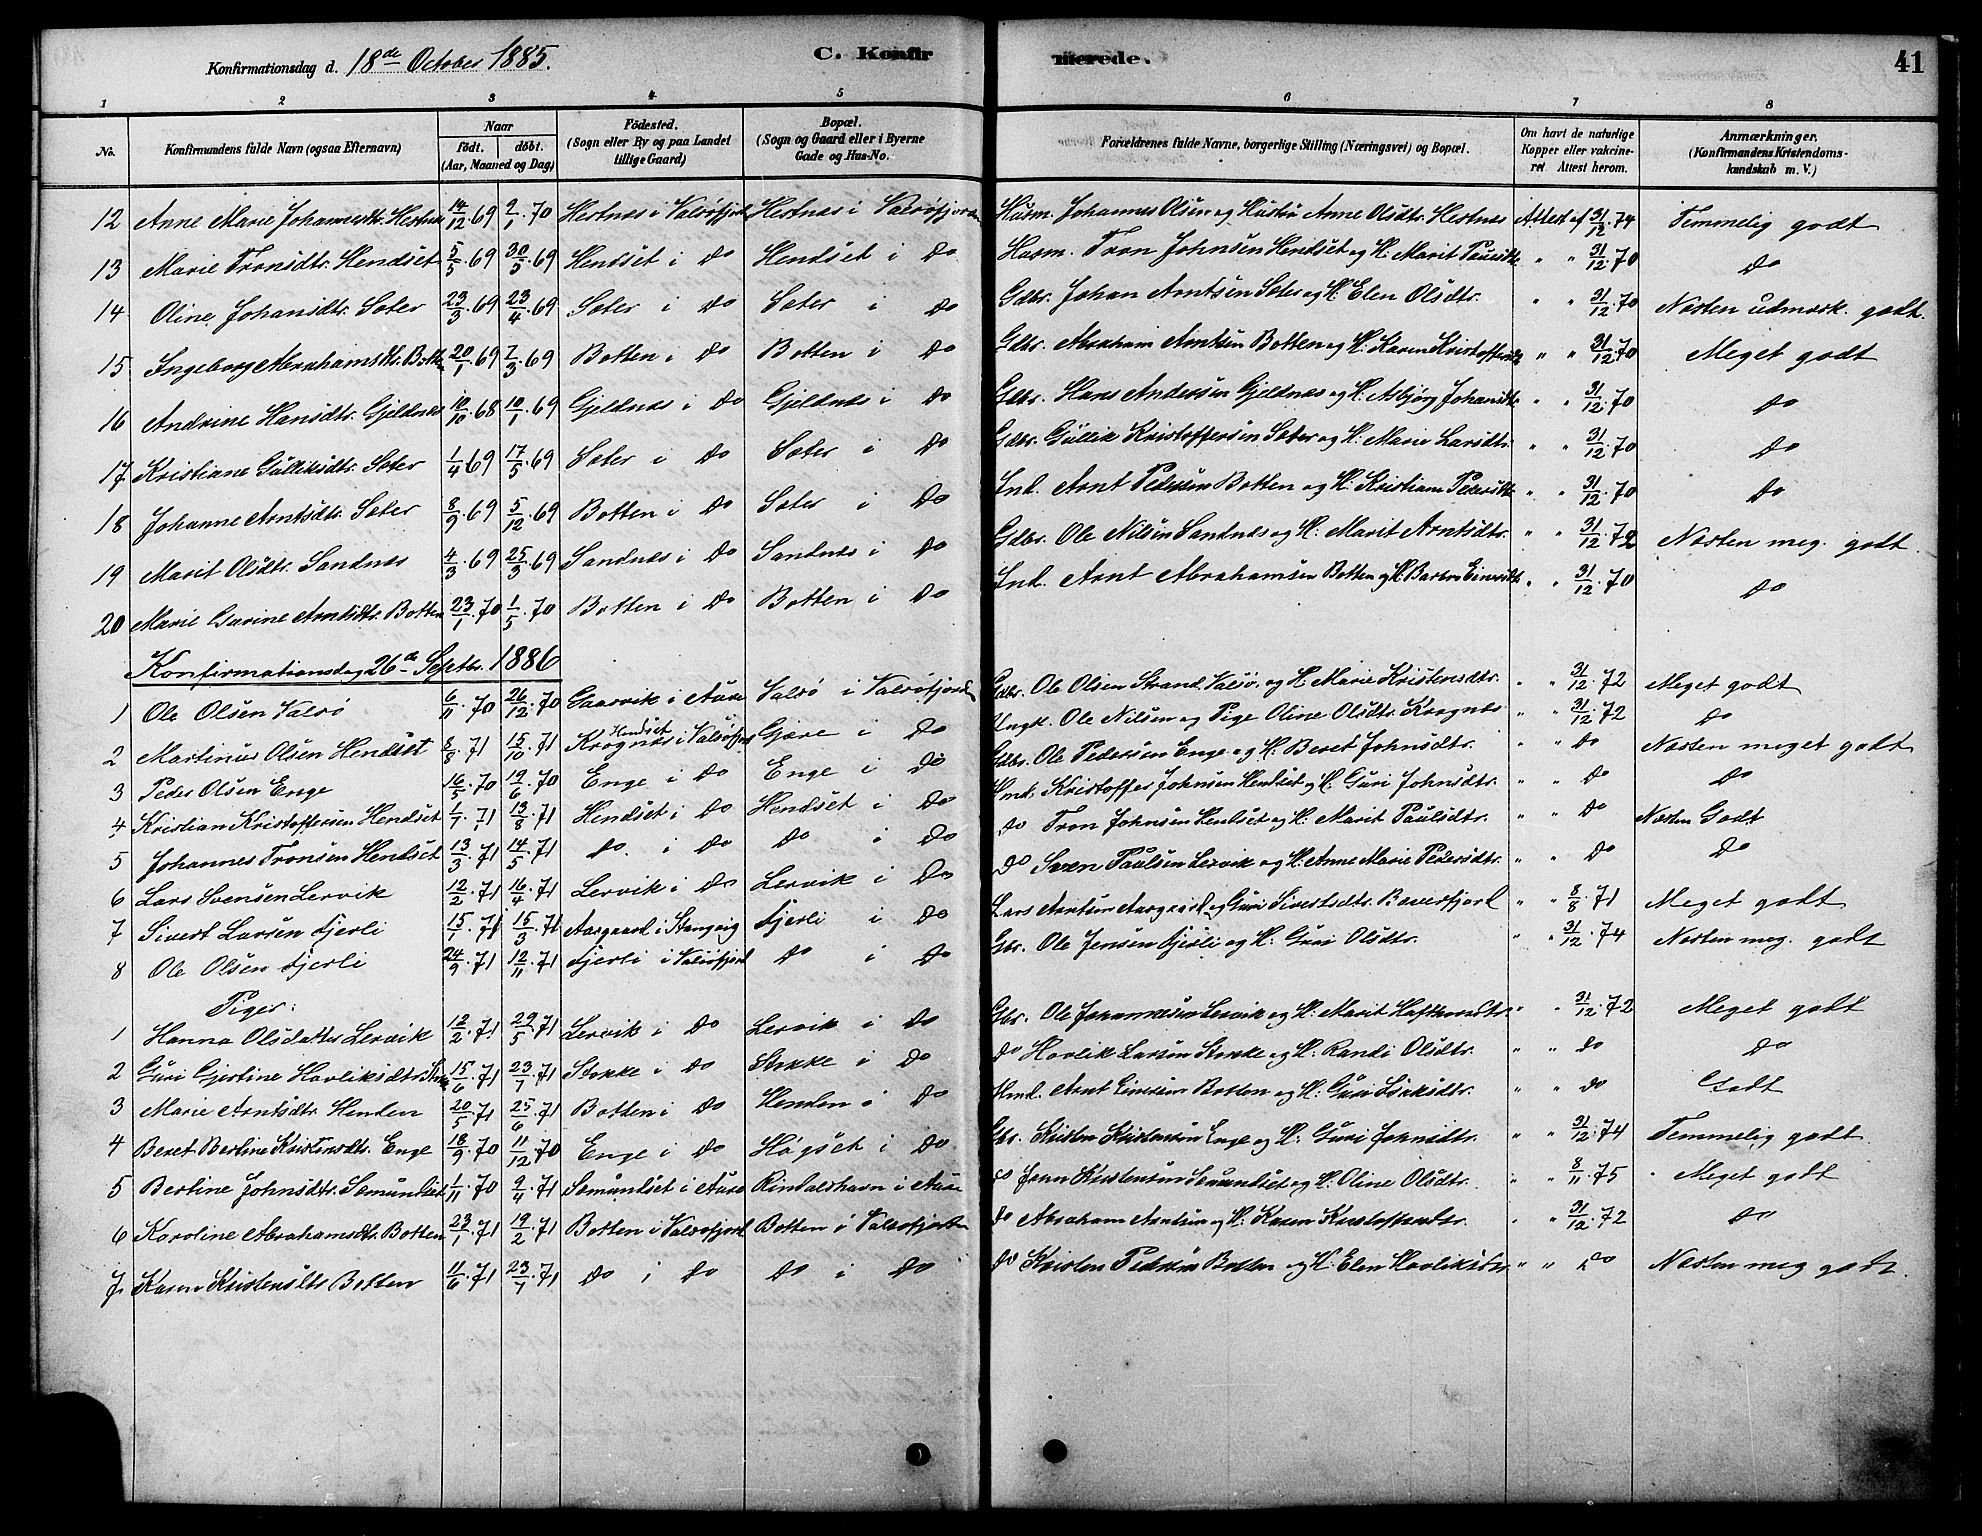 Konfirmationsdag d. 18de October 1885. C. Konfirmerede. 41
1 2 3 4 5 6 7 8
No. Konfirmandens fulde Navn (ogsaa Efternavn) Naar født. døbt. (Aar, Maaned og Dag) Fødested. (Sogn eller By og paa Landet tillige Gaard) Bopæl. (Sogn og Gaard eller i Byerne Gade og Hus-No. Forældrenes fulde Navne, borgerlige Stilling (Næringsvei) og Bopæl. Om havt de naturlige Kopper eller vakcineret Attest herom. Anmærkninger. (Konfirmandens Kristendomskundskab m. V.)
12 Anne Marie Johannesdtr. Hestnæs 14/12.69 2/1.70 Hestnæs i Valsøfjord Hestnæs i Valsøfjorden Husm. Johannes Olsen og Hustru Anne Olsdtr. Hestnæs Attest af 31/12.74 Temmelig godt
13 Marie Tronsdtr. Hendset 5/5.69 30/5.69 Hendset i do Hendset i do Husm. Tron Johnsen Hendset og H. Marit Paulsdtr. " " 31/12.70 do
14 Oline Johansdtr. Sæter 23/3.69 23/4.69 Sæter i do Sæter i do Gdbr. Johan Arntsen Sæter og H. Elen Olsdtr. " " 31/12.70 Næsten udmærk. godt.
15 Ingeborg Abrahamsdtr. Botten 20/1.69 7/3.69 Botten i do Botten i do Gdbr. Abraham Arntsen Botten og H. Karen Kristoffersdtr. " " 31/12.70 Meget godt
16 Andrine Hansdtr. Gjeldnæs 10/10.68 10/1.69 Gjeldnæs i do Gjeldnæs i do Gdbr. Hans Andersen Gjeldnæs og H. Asbjørg Johansdtr. " " 31/12.70 do
17 Kristiane Gulliksdtr. Sæter 1/4.69 17/5.69 Sæter i do Sæter i do Gdbr. Gullik Kristoffersen Sæter og H. Marie Larsdtr. " " 31/12.70 do
18 Johanne Arntsdtr. Sæter 8/9.69 5/12.69 Botten i do Sæter i do Ind. Arnt Pedersen Botten og H. Kristiane Pedersdtr. " " 31/12.70 do
19 Marit Olsdtr. Sandnæs 4/3.69 25/3.69 Sandnæs i do Sandnæs i do Gdbr. Ole Nilsen Sandnæs og H. Marit Arntsdtr. " " 31/12.72 Næsten meg. godt
20 Marie Gurine Arntsdtr. Botten 23/1.70 1/5.70 Botten i do Botten i do Ind. Arnt Abrahamsen Botten og H. Barbro Einersdtr. " " 31/12.70 do
Konfirmationsdag 26de Septbr. 1886
1 Ole Olsen Valsø 6/11.70 26/12.70 Gaasvik i Aure Valsø i Valsøfjord Gdbr. Ole Olsen Strand Valsø og H. Marie Kristensdtr. " " 31/12.72 Meget godt
2 Martinus Olsen Hendset 8/8.71 15/10.71 Hendset Krognæs i Valsøfjord Gjære i do Ungk. Ole Nilsen og Pige Oline Olsdtr. Krognæs " " 31/12.72 do
3 Peder Olsen Enge 16/5.70 19/6.70 Enge i do Enge i do Gdbr. Ole Pedersen Enge og H. Beret Johnsdtr. " " do Næsten meget godt
4 Kristian Kristoffersen Hendset 1/7.71 13/8.71 Hendset i do Hendset i do Hmd. Kristoffer Johnsen Hendset og H. Guri Johnsdtr. " " do do
5 Johannes Tronsen Hendset 13/3.71 14/5.71 do i do do i do do Tron Johnsen Hendset og H. Marit Paulsdtr. " " do Næsten Godt
6 Lars Svensen Lervik 12/2.71 16/4.71 Lervik i do Lervik i do do Sven Paulsen Lervik og H. Anne Marie Pedersdtr. " " do do
7 Sivert Larsen Fjerli 15/1.71 15/3.71 Aasgaard i Stangvig Fjerli i do Lars Arntsen Aasgaard og Guri Sivertsdtr. Bæverfjord " " 8/8.71 Meget godt
8 Ole Olsen Fjerli 24/9.71 12/11.71 Fjerli i Valsøfjord do i do Gbr. Ole Jensen Fjerli og H. Guri Olsdtr. " " 31/12.74 Næsten meg. godt
Piger:
1 Hanna Olsdatter Lervik 12/2.71 29/5.71 Lervik i do Lervik i do Gbr. Ole Johannesen Lervik og H. Marit Hafthorsdtr. " " 31/12.72 Meget godt
2 Guri Gjertine Havliksdtr. Stokke 15/6.71 23/7.71 Stokke i do Stokke i do do Havlik Larsen Stokke og H. Randi Olsdtr. " " do do
3 Marie Arntsdtr. Henden 20/5.71 25/6.71 Botten i do Henden i do Hmd. Arnt Einersen Botten og H. Guri Isaksdtr. " " do Godt
4 Beret Bertine Kristensdtr. Enge 18/9.70 11/12.70 Enge i do Høgset i do Gbr. Kristen Kristensen Enge og H. Guri Johnsdtr. " " 31/12.74 Temmelig godt
5 Bertine Johnsdtr. Semundset 1/11.70 9/4.71 Semundset i Aure Rindalshavn i Aure do John Kristensen Semundset og H. Oline Olsdtr. " " 8/11.75 Meget godt
6 Karoline Abrahamsdtr. Botten 23/1.71 19/2.71 Botten i Valsøfjord Botten i Valsøfjorden do Abraham Arntsen og H. Karen Kristoffersdtr. " " 31/12.72 do
7. Karen Kristensdtr. Botten 11/6.71 23/7.71 do i do do i do do Kristen Pedersen Botten og H. Elen Havliksdtr. " " do Næsten meg godt.